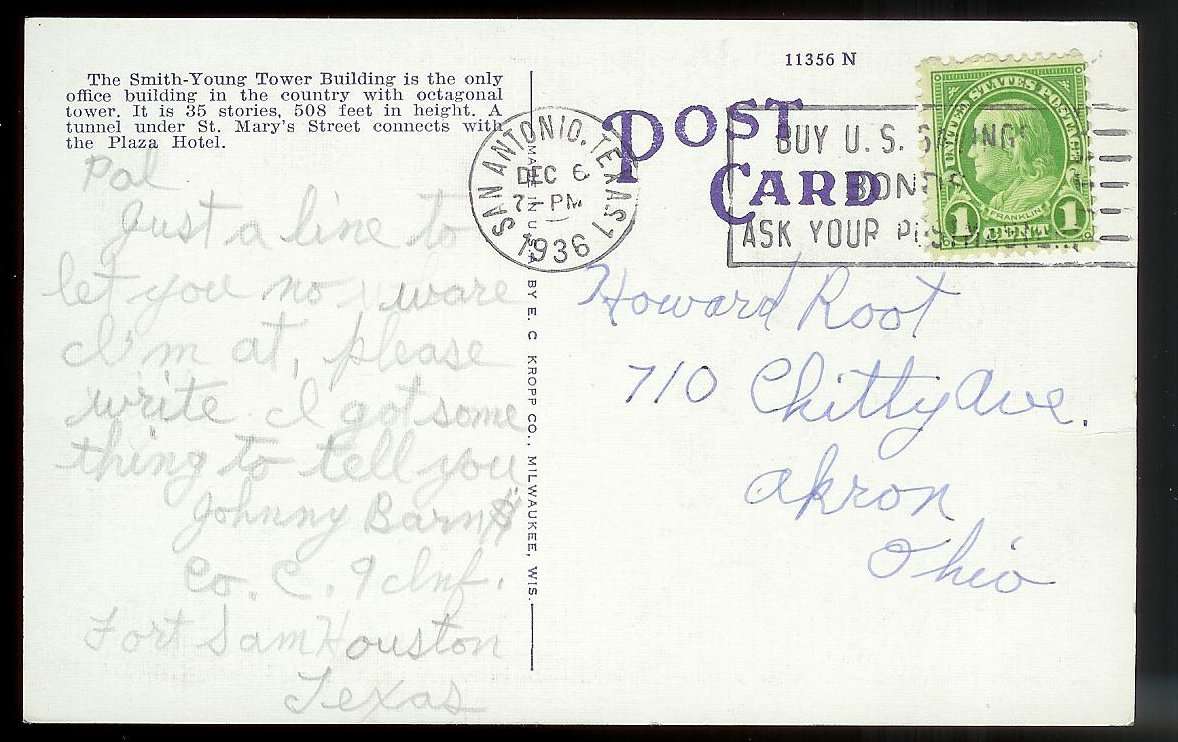 The Smith-Young Tower Building is the only
office building in the country with octagonal
tower. It is 35 stories, 508 feet in height. A
tunnel under St. Mary's Street connects with
the Plaza Hotel.
Pal
Just a line to
let you no ware
I'm at, please
write I got some
thing to tell you
Johnny Barns
Co. C. 9 Inf.
Fort Sam Houston
Texas
MADE IN U.S.A. BY E. C. KROPP CO., MILWAUKEE, WIS.
11356 N
POST
CARD
SAN ANTONIO, TEXAS 1
DEC 6
7 PM
1936
BUY U. S. SAVINGS
BONDS
ASK YOUR POSTMASTER
UNITED STATES POSTAGE
FRANKLIN
1 CENT 1
Howard Root
710 Chitty Ave.
Akron
Ohio